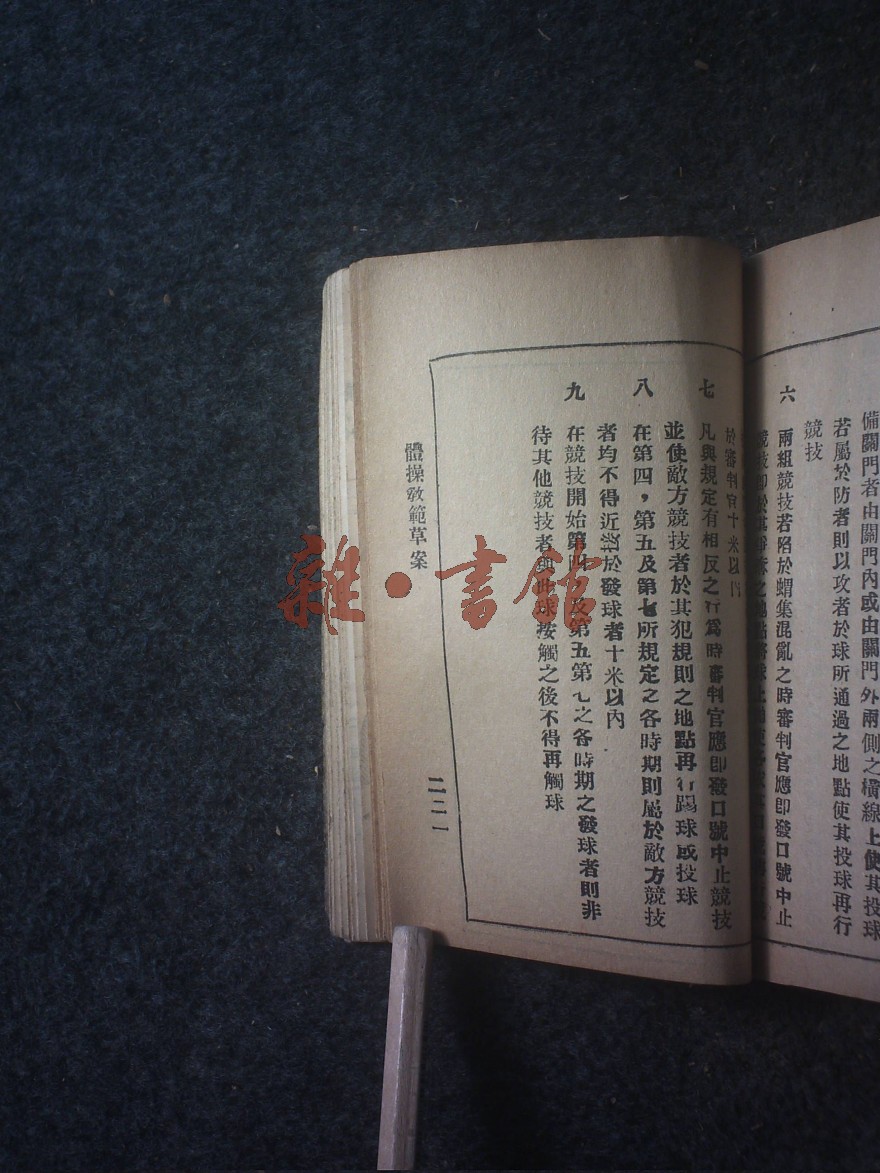 備關門者由關門內或由關門外兩側之橫線上使其投球
若屬於防者則以攻者於球所通過之地點使其投球再行
競技
六 兩組競技若陷於蝟集混亂之時審判官應即發口號中止
競技即於其
於審判官十米以內
七 凡與規定有相反之行為時審判官應即發口號中止競技
並使敵方競技者於其犯規則之地點再行踢球或投球
八 在第四，第五及第七所規定之各時期則屬於敵方競技
者均不得近於發球者十米以內
九 在競技開始第四及第五第七之各時期之發球者則非
待其他競技者與此球按觸之後不得再觸球
體操教範草案
二二一
雜·書館